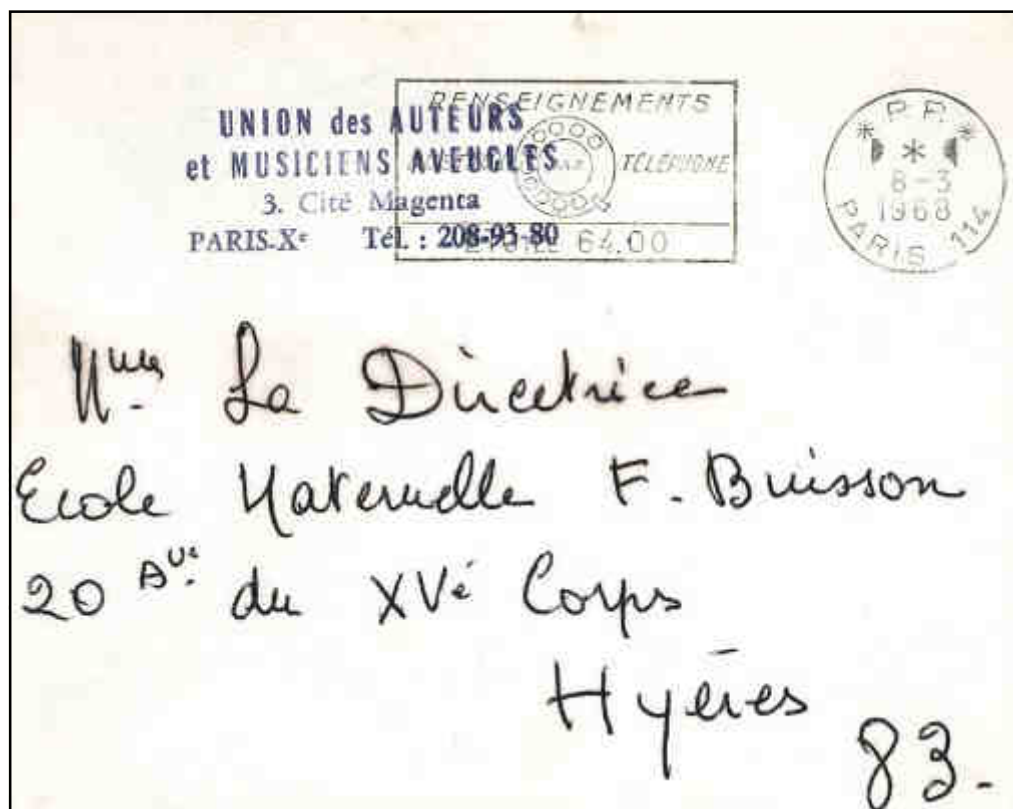 UNION des AUTEURS
et MUSICIENS AVEUGLES
3. Cité Magenta
PARIS-Xe Tél. : 208-93-80
RENSEIGNEMENTS
TÉLÉPHONE
64.00
P.P.
8-3
1968
PARIS 114
Mme La Directrice
Ecole Maternelle F. Buisson
20 Ave. du XVé Corps
Hyères
83.